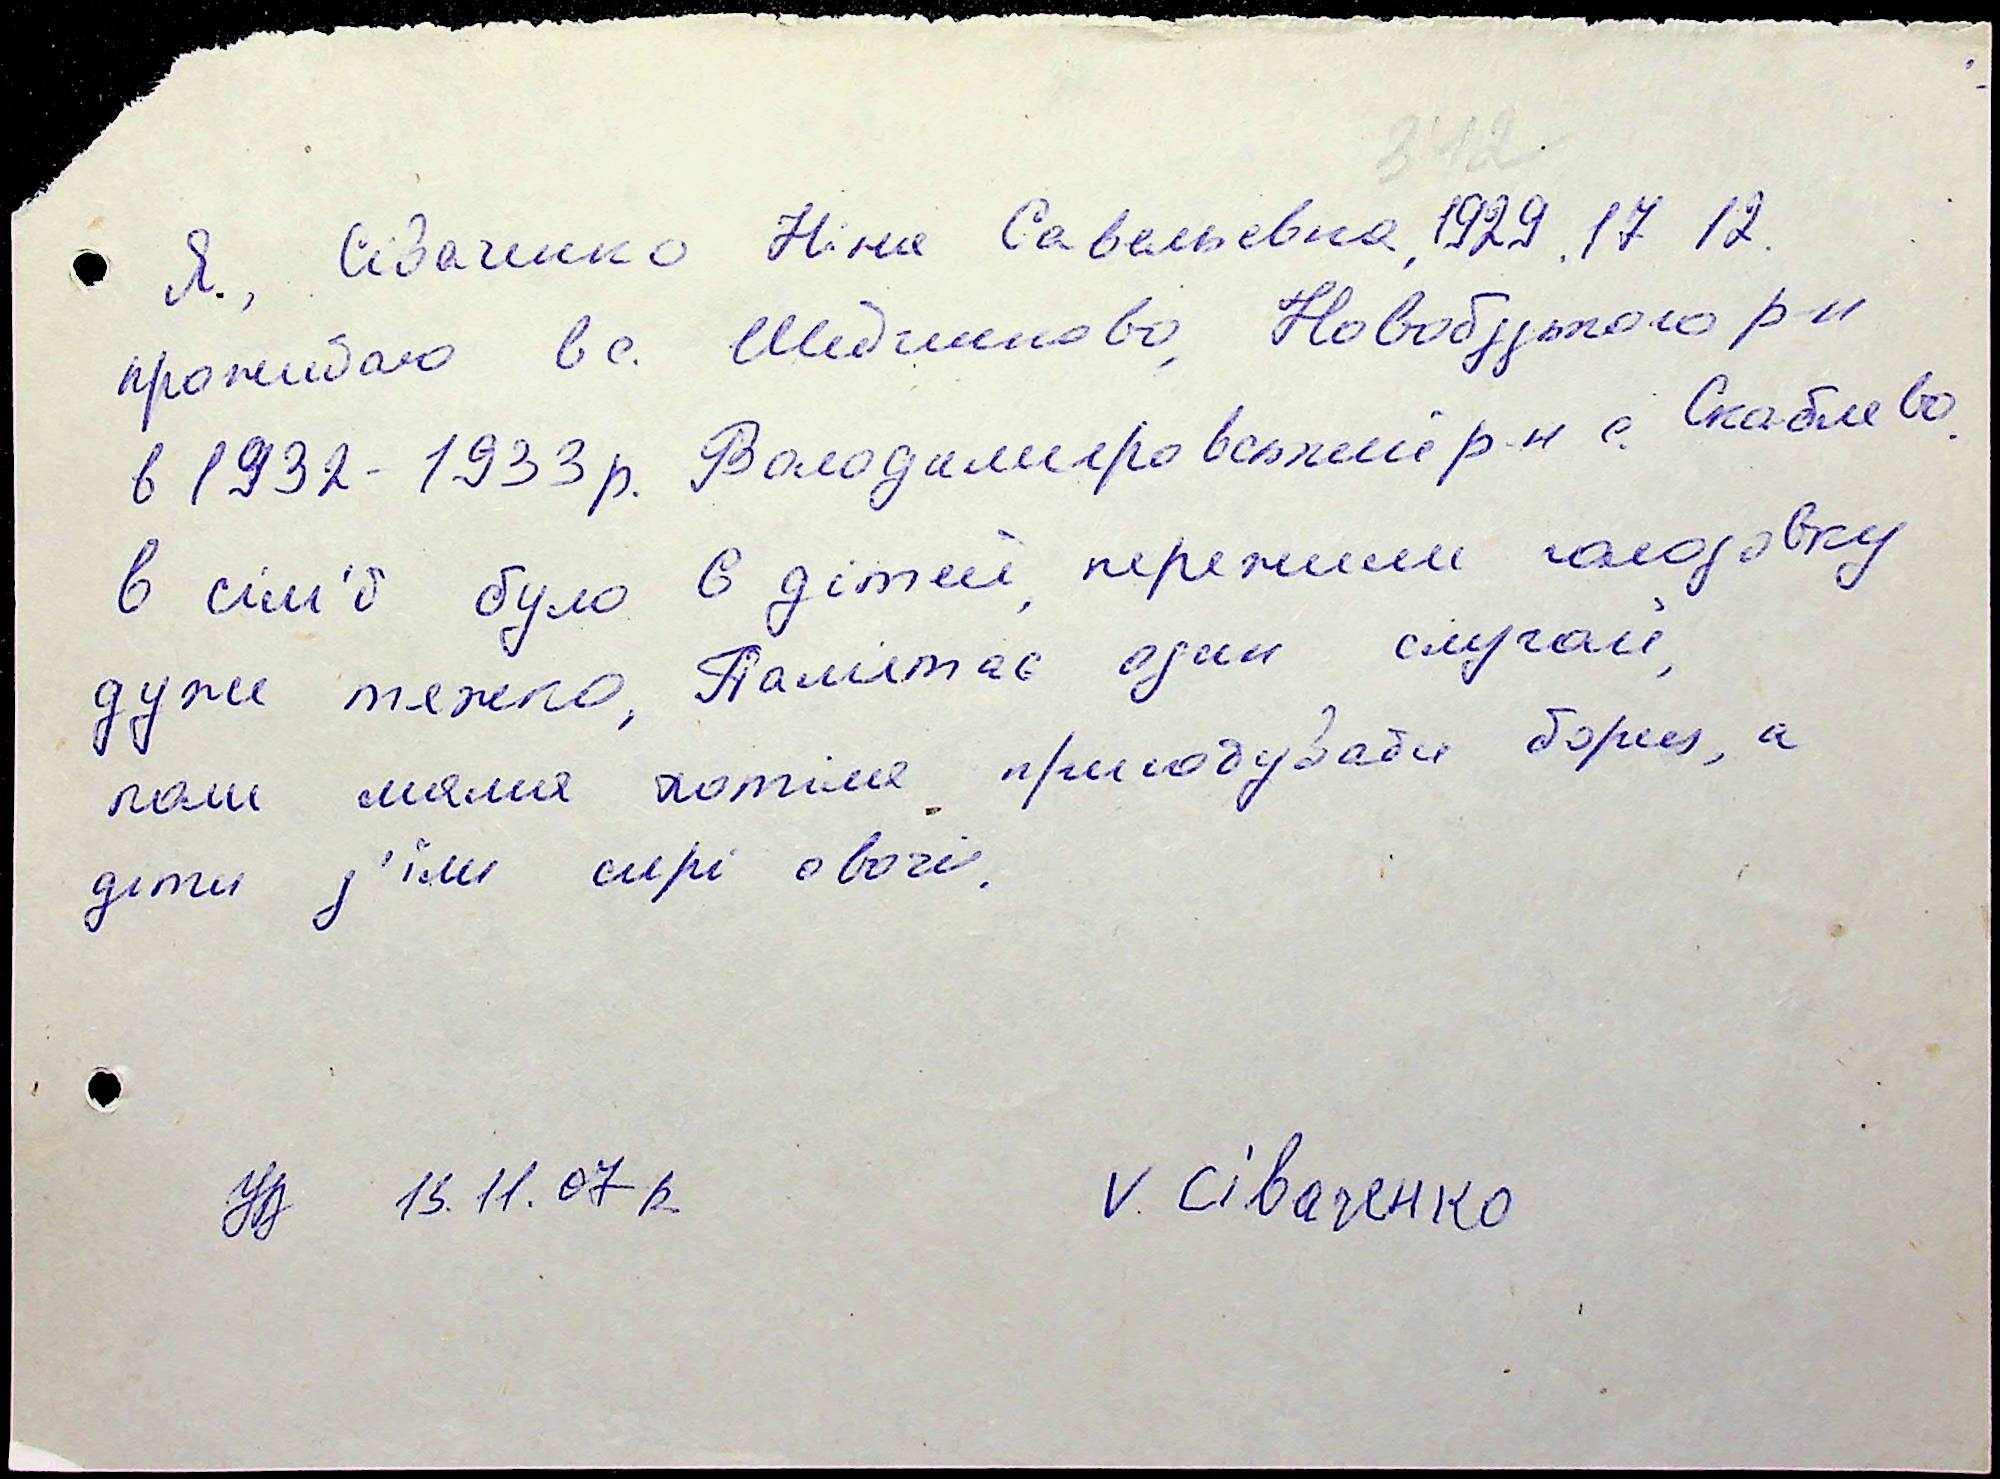 342
Я., Сіваченко Ніна Савельевна, 1929.17 12.
проживаю в с. Новобузького р-н
в 1932-1933 р. Володимировський р-н с. Скобелево.
в сім'ї було 6 дітей, пережили голодовку
дуже тяжко, Памятає один случай,
коли мама хотіла приготувати борщ, а
діти з'їли сирі овочі.
15.11.07 р. V. Сіваченко